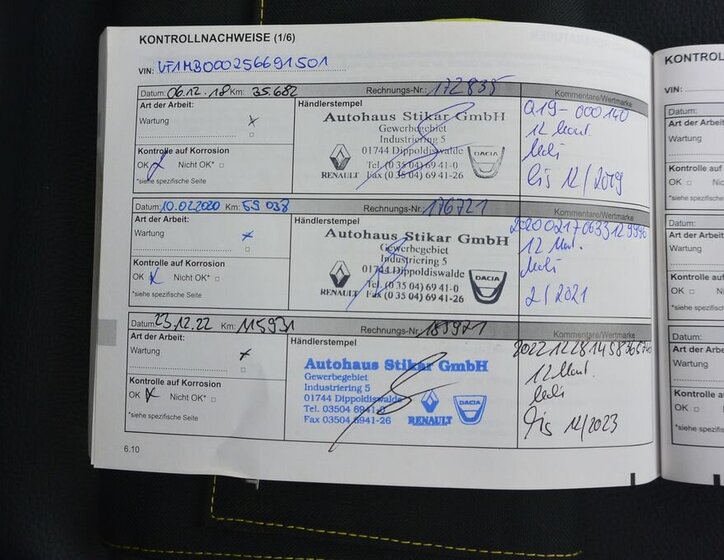 KONTROLLNACHWEISE (1/6)
VIN: VF1MB000256691501
Datum: 06.12.18 Km: 35.682 Rechnungs-Nr.: 172835 Kommentare/Wertmarke
Art der Arbeit:
Wartung x
Kontrolle auf Korrosion
OK Nicht OK* □
*siehe spezifische Seite
Händlerstempel
Autohaus Stikar GmbH
Gewerbegebiet
Industriering 5
01744 Dippoldiswalde
Tel. (0 35 04) 69 41-0
Fax (0 35 04) 69 41-26
RENAULT
DACIA
Q19-000140
12 Mont.
bis 12/2019
Datum: 10.02.2020 Km: 59 038 Rechnungs-Nr.: 176721 Kommentare/Wertmarke
Art der Arbeit:
Wartung x
Kontrolle auf Korrosion
OK Nicht OK* □
*siehe spezifische Seite
Händlerstempel
Autohaus Stikar GmbH
Gewerbegebiet
Industriering 5
01744 Dippoldiswalde
Tel. (0 35 04) 69 41-0
Fax (0 35 04) 69 41-26
RENAULT
DACIA
12 Mont.
2/2021
Datum: 23.12.22 Km: 115931 Rechnungs-Nr.: 183921 Kommentare/Wertmarke
Art der Arbeit:
Wartung x
Kontrolle auf Korrosion
OK Nicht OK* □
*siehe spezifische Seite
Händlerstempel
Autohaus Stikar GmbH
Gewerbegebiet
Industriering 5
01744 Dippoldiswalde
Tel. 03504 6941-0
Fax 03504 6941-26
RENAULT
DACIA
12 Mont.
Bis 12/2023
6.10
KONTROL
VIN:
Datum:
Art der Arbeit
Wartung
Kontrolle auf
OK □ Nich
*siehe spezifisch
Datum:
Art der Arbeit
Wartung
Kontrolle auf
OK □ Nich
*siehe spezifisch
Datum:
Art der Arbei
Wartung
Kontrolle au
OK □ Ni
*siehe spezifis